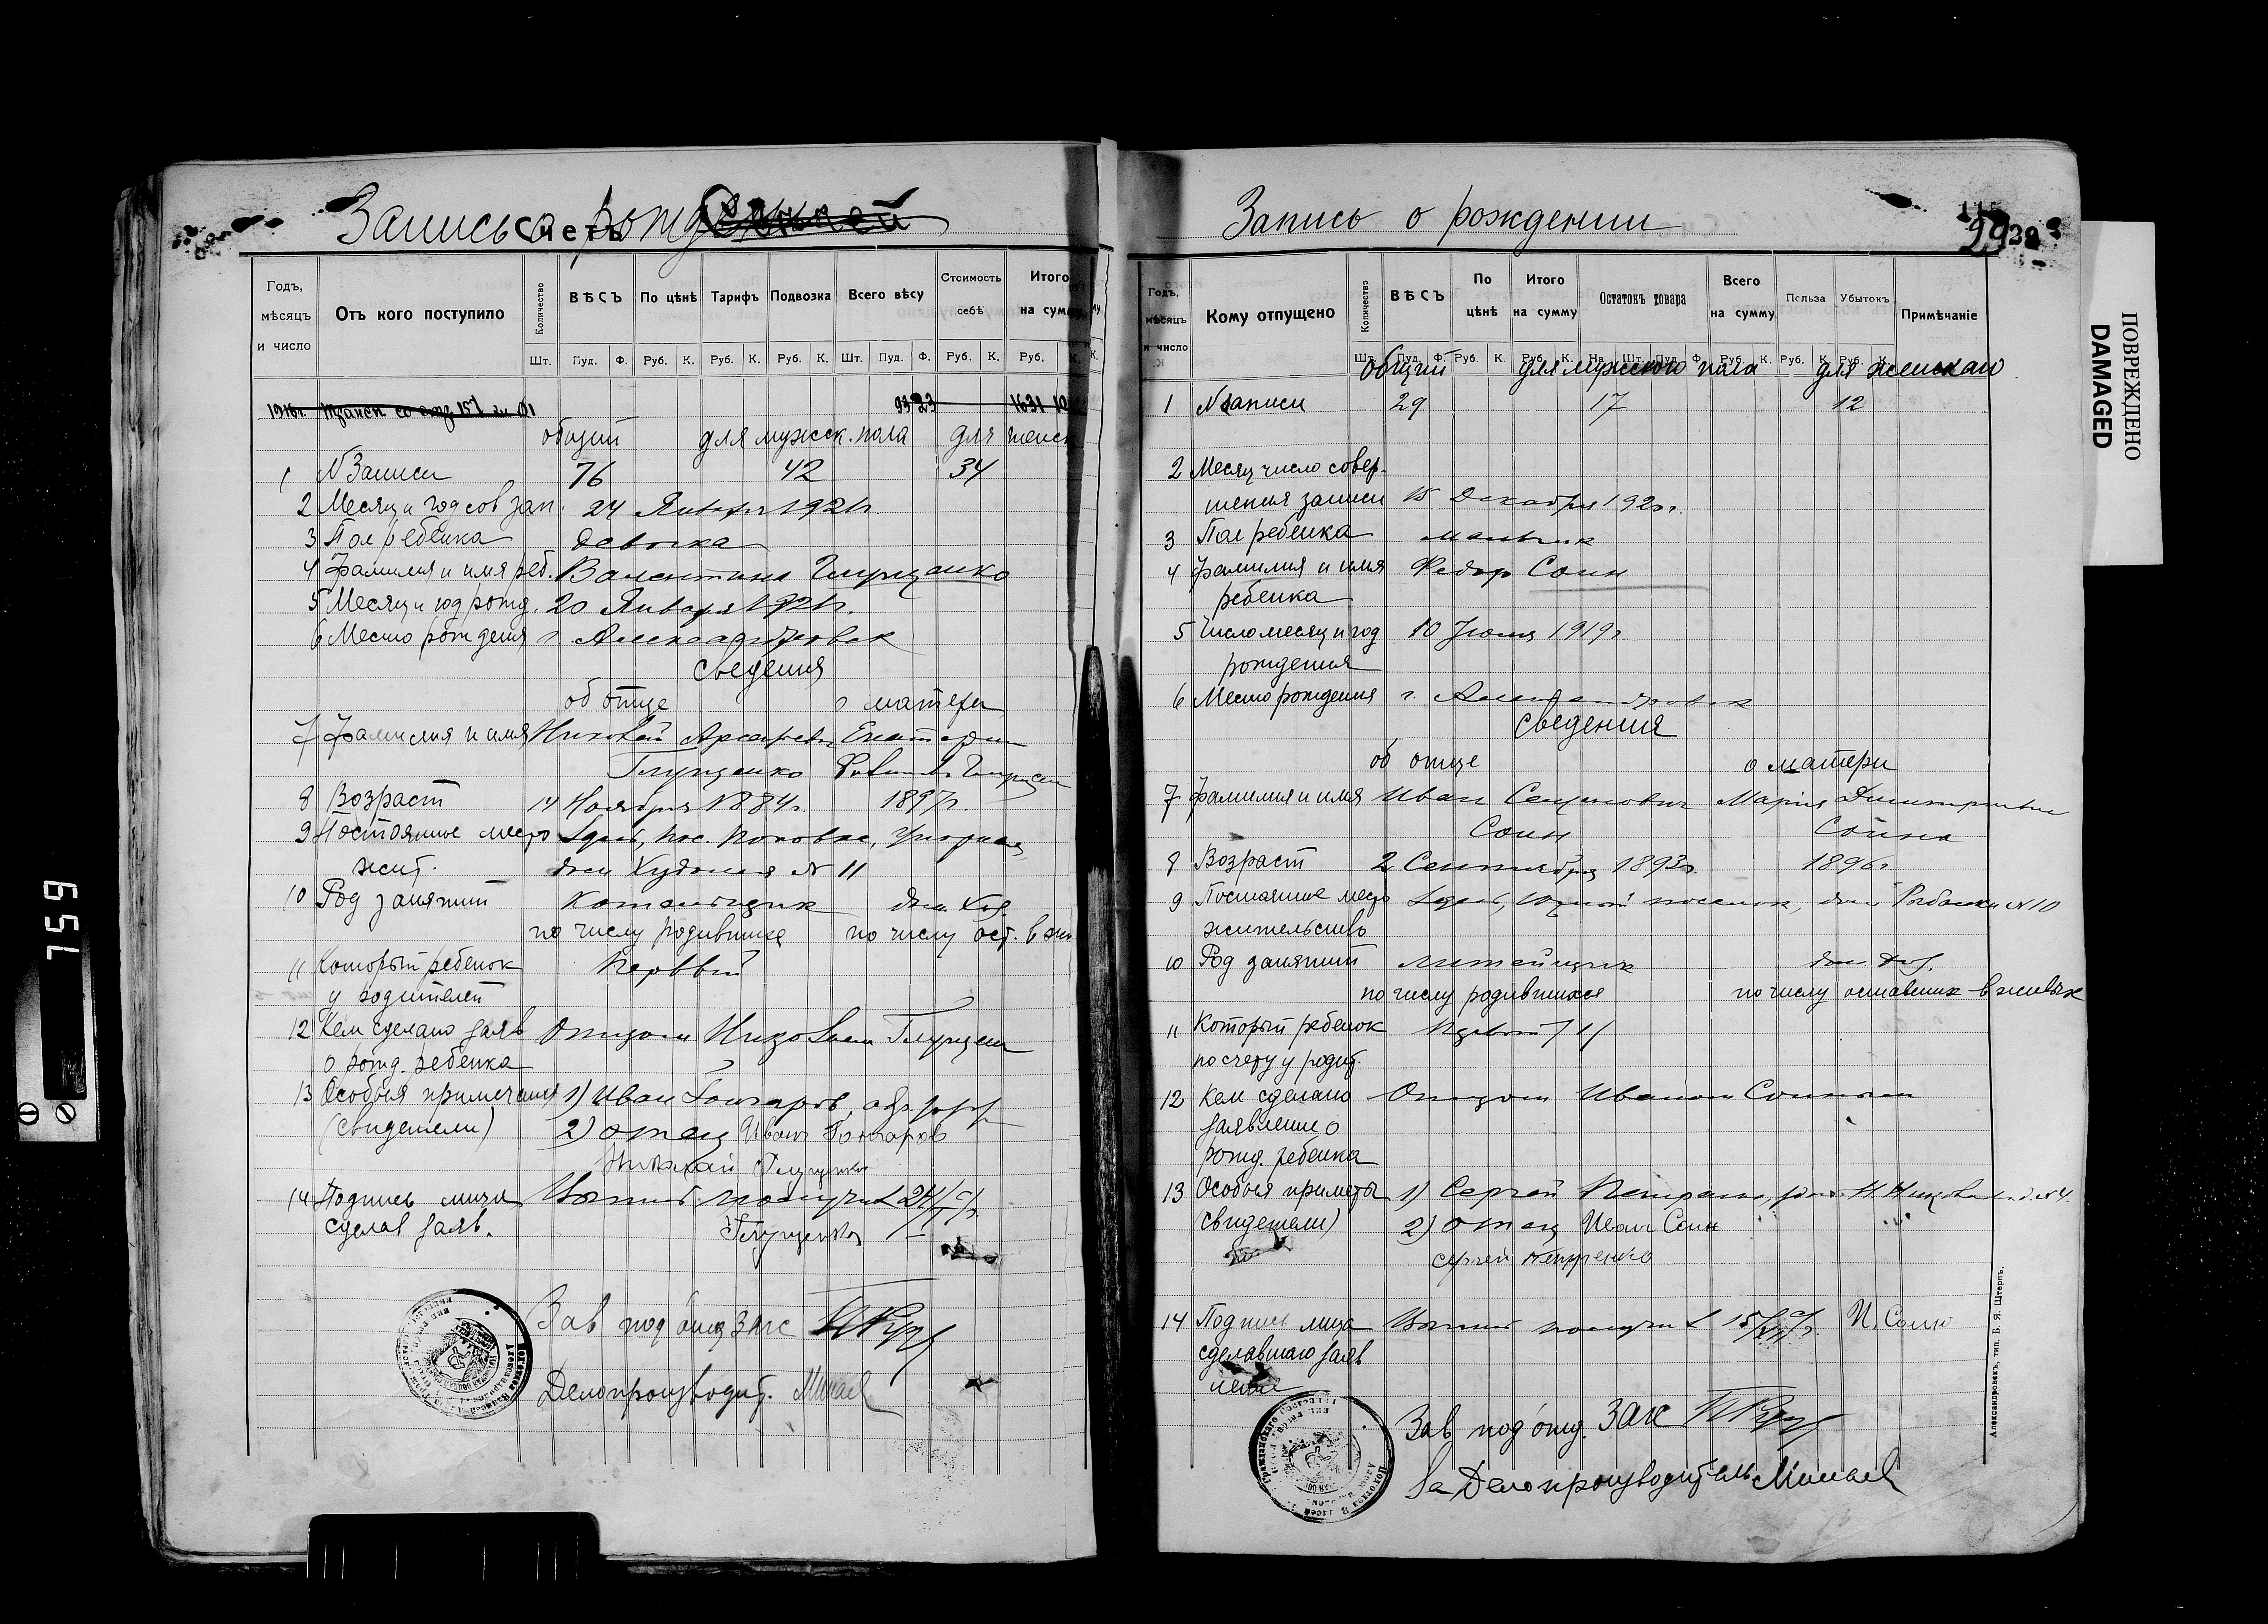 Запись о рожд
Счетъ
Годъ, мѣсяцъ и число
Отъ кого поступило
Количество
ВѢСЪ
По цѣнѣ
Тарифъ
Подвозка
Всего вѣсу
Стоимость себѣ
Итого на сумму
Шт. Пуд. Ф. Руб. К. Руб. К. Руб. К. Шт. Пуд. Ф. Руб. К. Руб. К.
общий для мужск. пола для женск
1 N Записи 76 42 34
2 Месяц и год сов зап. 24 Января 1921г.
3 Пол ребенка девочка
4 Фамилия и имя реб. Валентина Глущенко
5 Месяц и год рожд. 20 Января 1921г.
6 Место рождения г. Александровск
сведения
об отце о матери
7 Фамилия и имя Николай
Глущенко
8 Возраст 14 Ноября 1884г. 1897г.
9 Постоянное место Здесь, пос.
жит. дом N 11
10 Род занятий Котельщик дом. хоз.
по числу родившихся по числу ост. в жив
11 Который ребенок Первый
у родителей
12 Кем сделано заяв Отцом Глущен
о рожд. ребенка
13 Особыя примечания 1) Иван Гончаров,
(свидетели) 2) отец Иван Гончаров
Николай Глущенко
14 Подпись лица получил 24/I
сделав заяв. Глущенко
Зав под отд ЗАГС
Делопроизводит. Минаев
Запись о рождении
29
Годъ, мѣсяцъ и число
Кому отпущено
Количество
ВѢСЪ
По цѣнѣ
Итого на сумму
Остатокъ товара
Всего на сумму
Польза
Убытокъ
Примѣчаніе
Шт. Пуд. Ф. Руб. К. Руб. К. На Шт. Пуд. Ф. Руб. К. Руб. К. Руб. К.
общий для мужского пола для женскаго
1 N записи 29 17 12
2 Месяц число совер-
шения записи 15 Декабря 1920г.
3 Пол ребенка мальчик
4 Фамилия и имя Федор Соин
ребенка
5 Число месяц и год 10 Июня 1919г
рождения
6 Место рождения г. Александровск
сведения
об отце о матери
7 Фамилия и имя Иван Семенович Мария Димитриевна
Соин Соина
8 Возраст 2 Сентября 1893г. 1896г.
9 Постоянное место Здесь, Южный поселок, дом N 10
жительство
10 Род занятий литейщик дом. хоз.
по числу родившихся по числу оставших в живых
11 Который ребенок Первый /1/
по счету у родит.
12 Кем сделано Отцом Иваном Соиным
заявление о
рожд. ребенка
13 Особыя приметы 1) Сергей
(свидетели) 2) отец Иван Соин
Сергей
14 Подпись лица получил 15/XII И. Соин
сделавшаго заяв
ление
Зав под отд. ЗАГС
За Делопроизводитель Минаев
Александровскъ, тип. Б. Я. Штернъ.
ПОВРЕЖДЕНО
DAMAGED
659